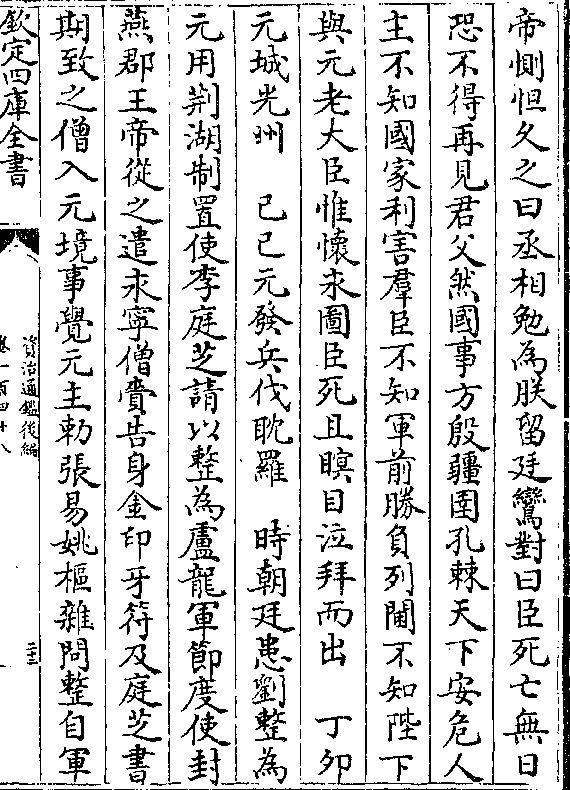 帝惻怛久之曰丞相勉為朕留廷鸞對曰臣死亡無日
恐不得再見君父然國事方殷疆圉孔棘天下安危人
主不知國家利害羣臣不知軍前勝負列閫不知陛下
與元老大臣惟懷永圖臣死且瞑目泣拜而出　丁卯
元城光州　己巳元發兵伐耽羅　時朝廷患劉整為
元用荆湖制置使李庭芝請以整為盧龍軍節度使封
燕郡王帝從之遣永寧僧賫告身金印牙符及庭芝書
期致之僧入元境事覺元主勅張易姚樞雜問整自軍
欽定四庫全書
資治通鑑後編
卷一百四十八
二十三